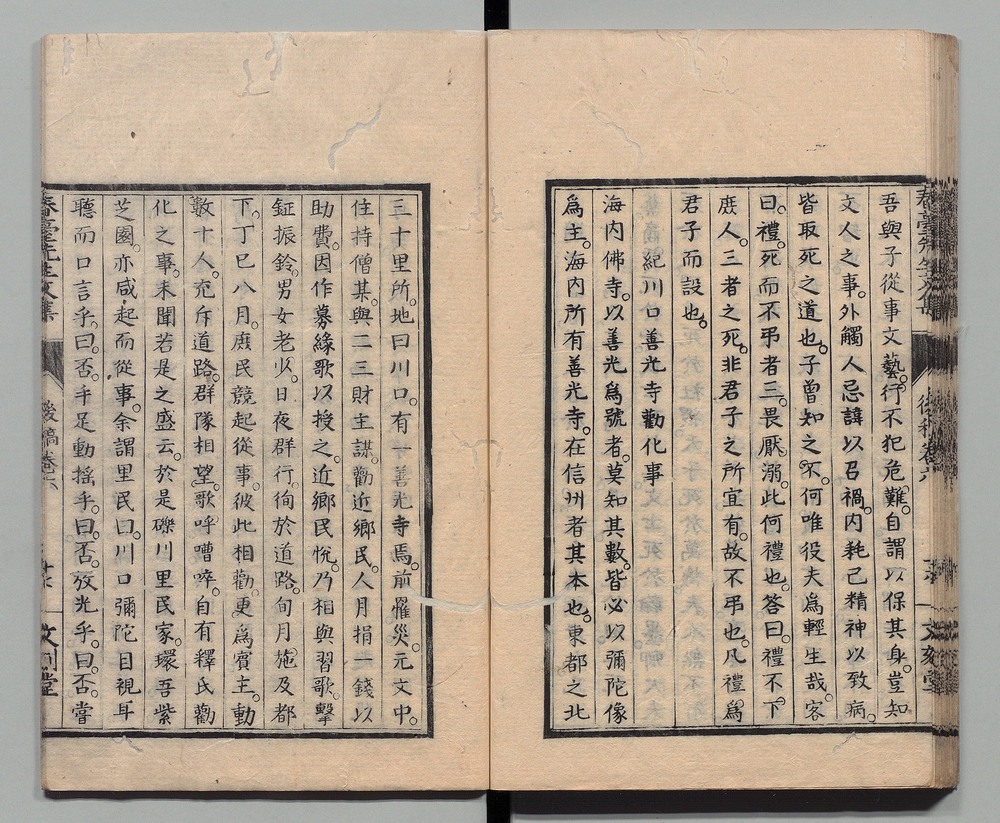 吾與子從事文藝。行不犯危難。自謂以保其身。豈知
文人之事。外觸人忌諱以召禍。内耗己精神以致病。
皆取死之道也。子曾知之不。何唯役夫爲輕生哉。客
曰。禮。死而不弔者三。畏厭溺。此何禮也。答曰。禮不下
庶人。三者之死。非君子之所宜有。故不弔也。凡禮爲
君子而設也。
紀川口善光寺勸化事
海内佛寺。以善光爲號者。莫知其數。皆必以彌陀像
爲主。海内所有善光寺。在信州者其本也。東都之北
三十里所。地曰川口。有一善光寺焉。前罹災。元文中。
住持僧某。與二三財主謀。勸近鄉民。人月捐一錢以
助費。因作募緣歌以授之。近鄉民悅。乃相與習歌。擊
鉦振鈴。男女老少。日夜群行。徇於道路。旬月施及都
下。丁巳八月。庶民競起從事。彼此相勸。更爲賓主。動
數十人。充斥道路。群隊相望。歌呼嘈啐。自有釋氏勸
化之事。未聞若是之盛云。於是礫川里民家。環吾紫
芝園。亦咸起而從事。余謂里民曰。川口彌陀目視耳
聽而口言乎。曰。否。手足動搖乎。曰。否。放光乎。曰。否。嘗
春臺先生文集 後稿卷六